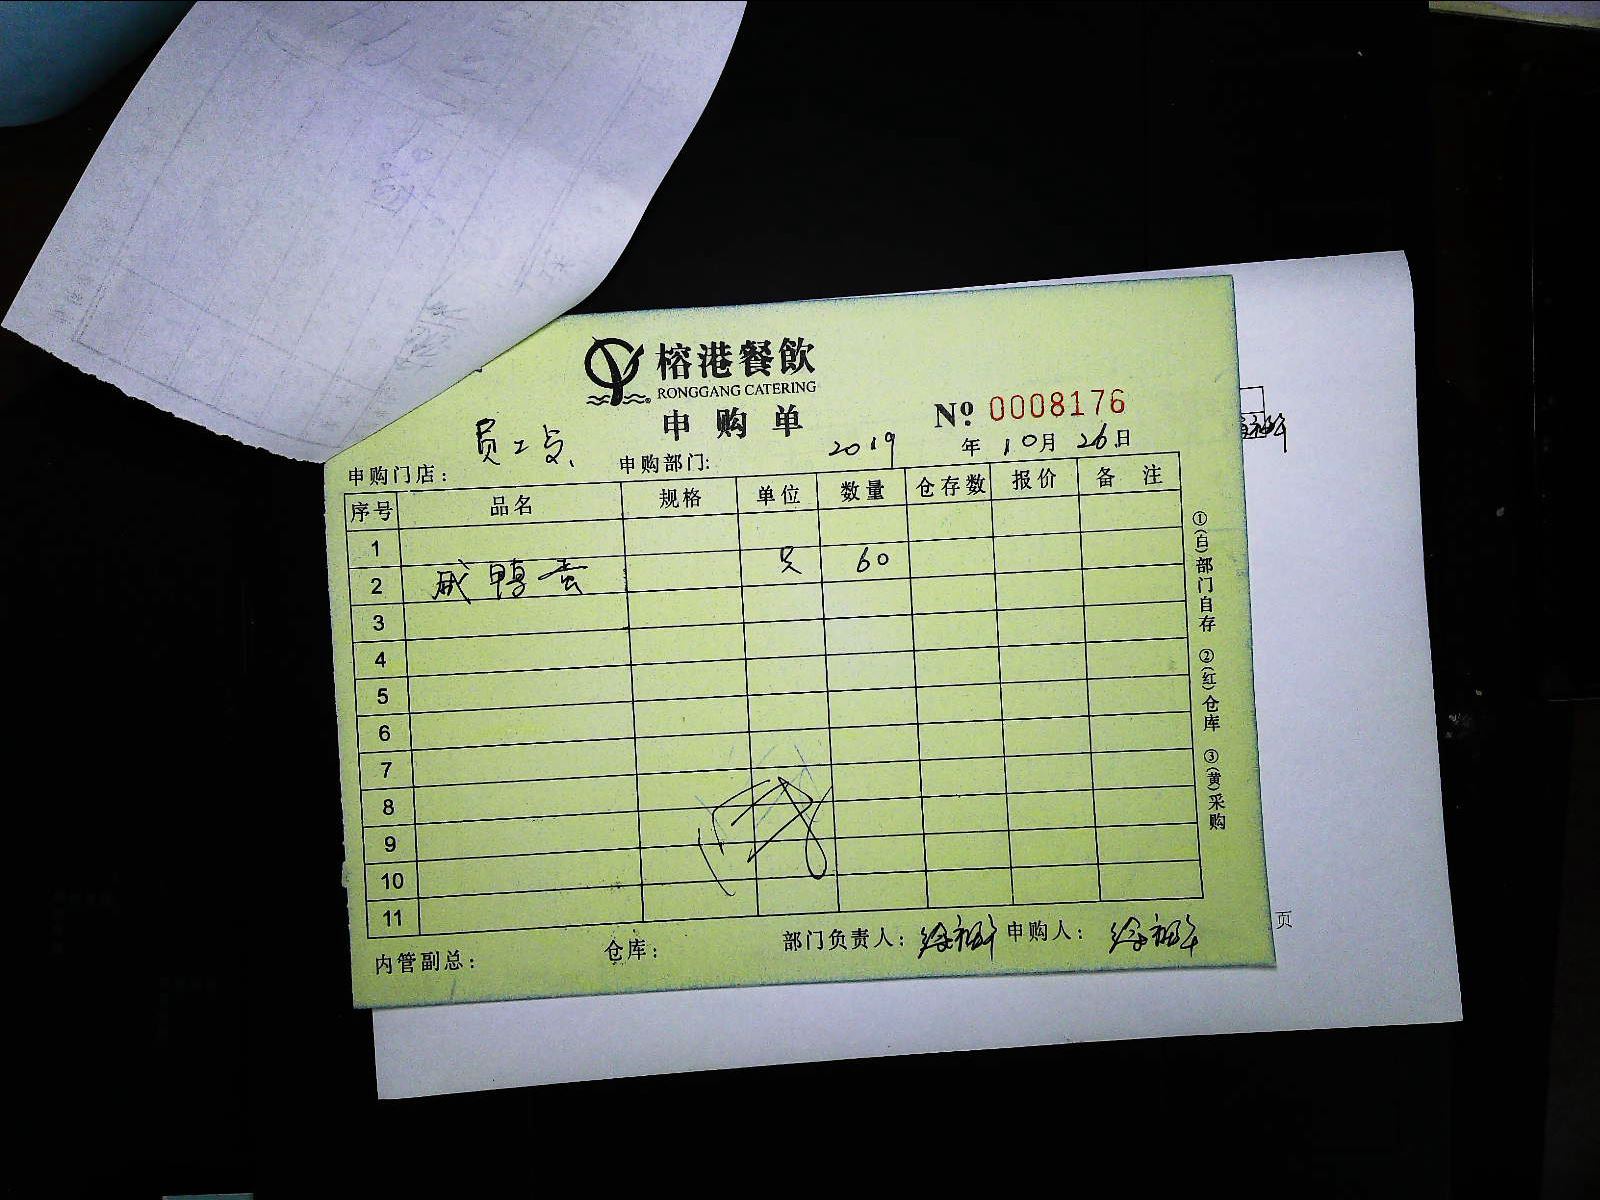 榕港餐飲
RONGGANG CATERING
申购单
№ 0008176
申购门店: 员工点 申购部门: 2019年10月26日
序号 品名 规格 单位 数量 仓存数 报价 备注
1
2 咸鸭蛋 只 60
3
4
5
6
7
8
9
10
11
内管副总: 仓库: 部门负责人: 申购人:
①(白)部门自存 ②(红)仓库 ③(黄)采购
页